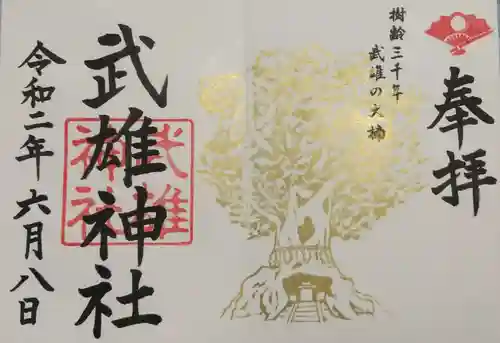 奉拝
樹齢三千年
武雄の大楠
武雄神社
武雄神社
令和二年六月八日